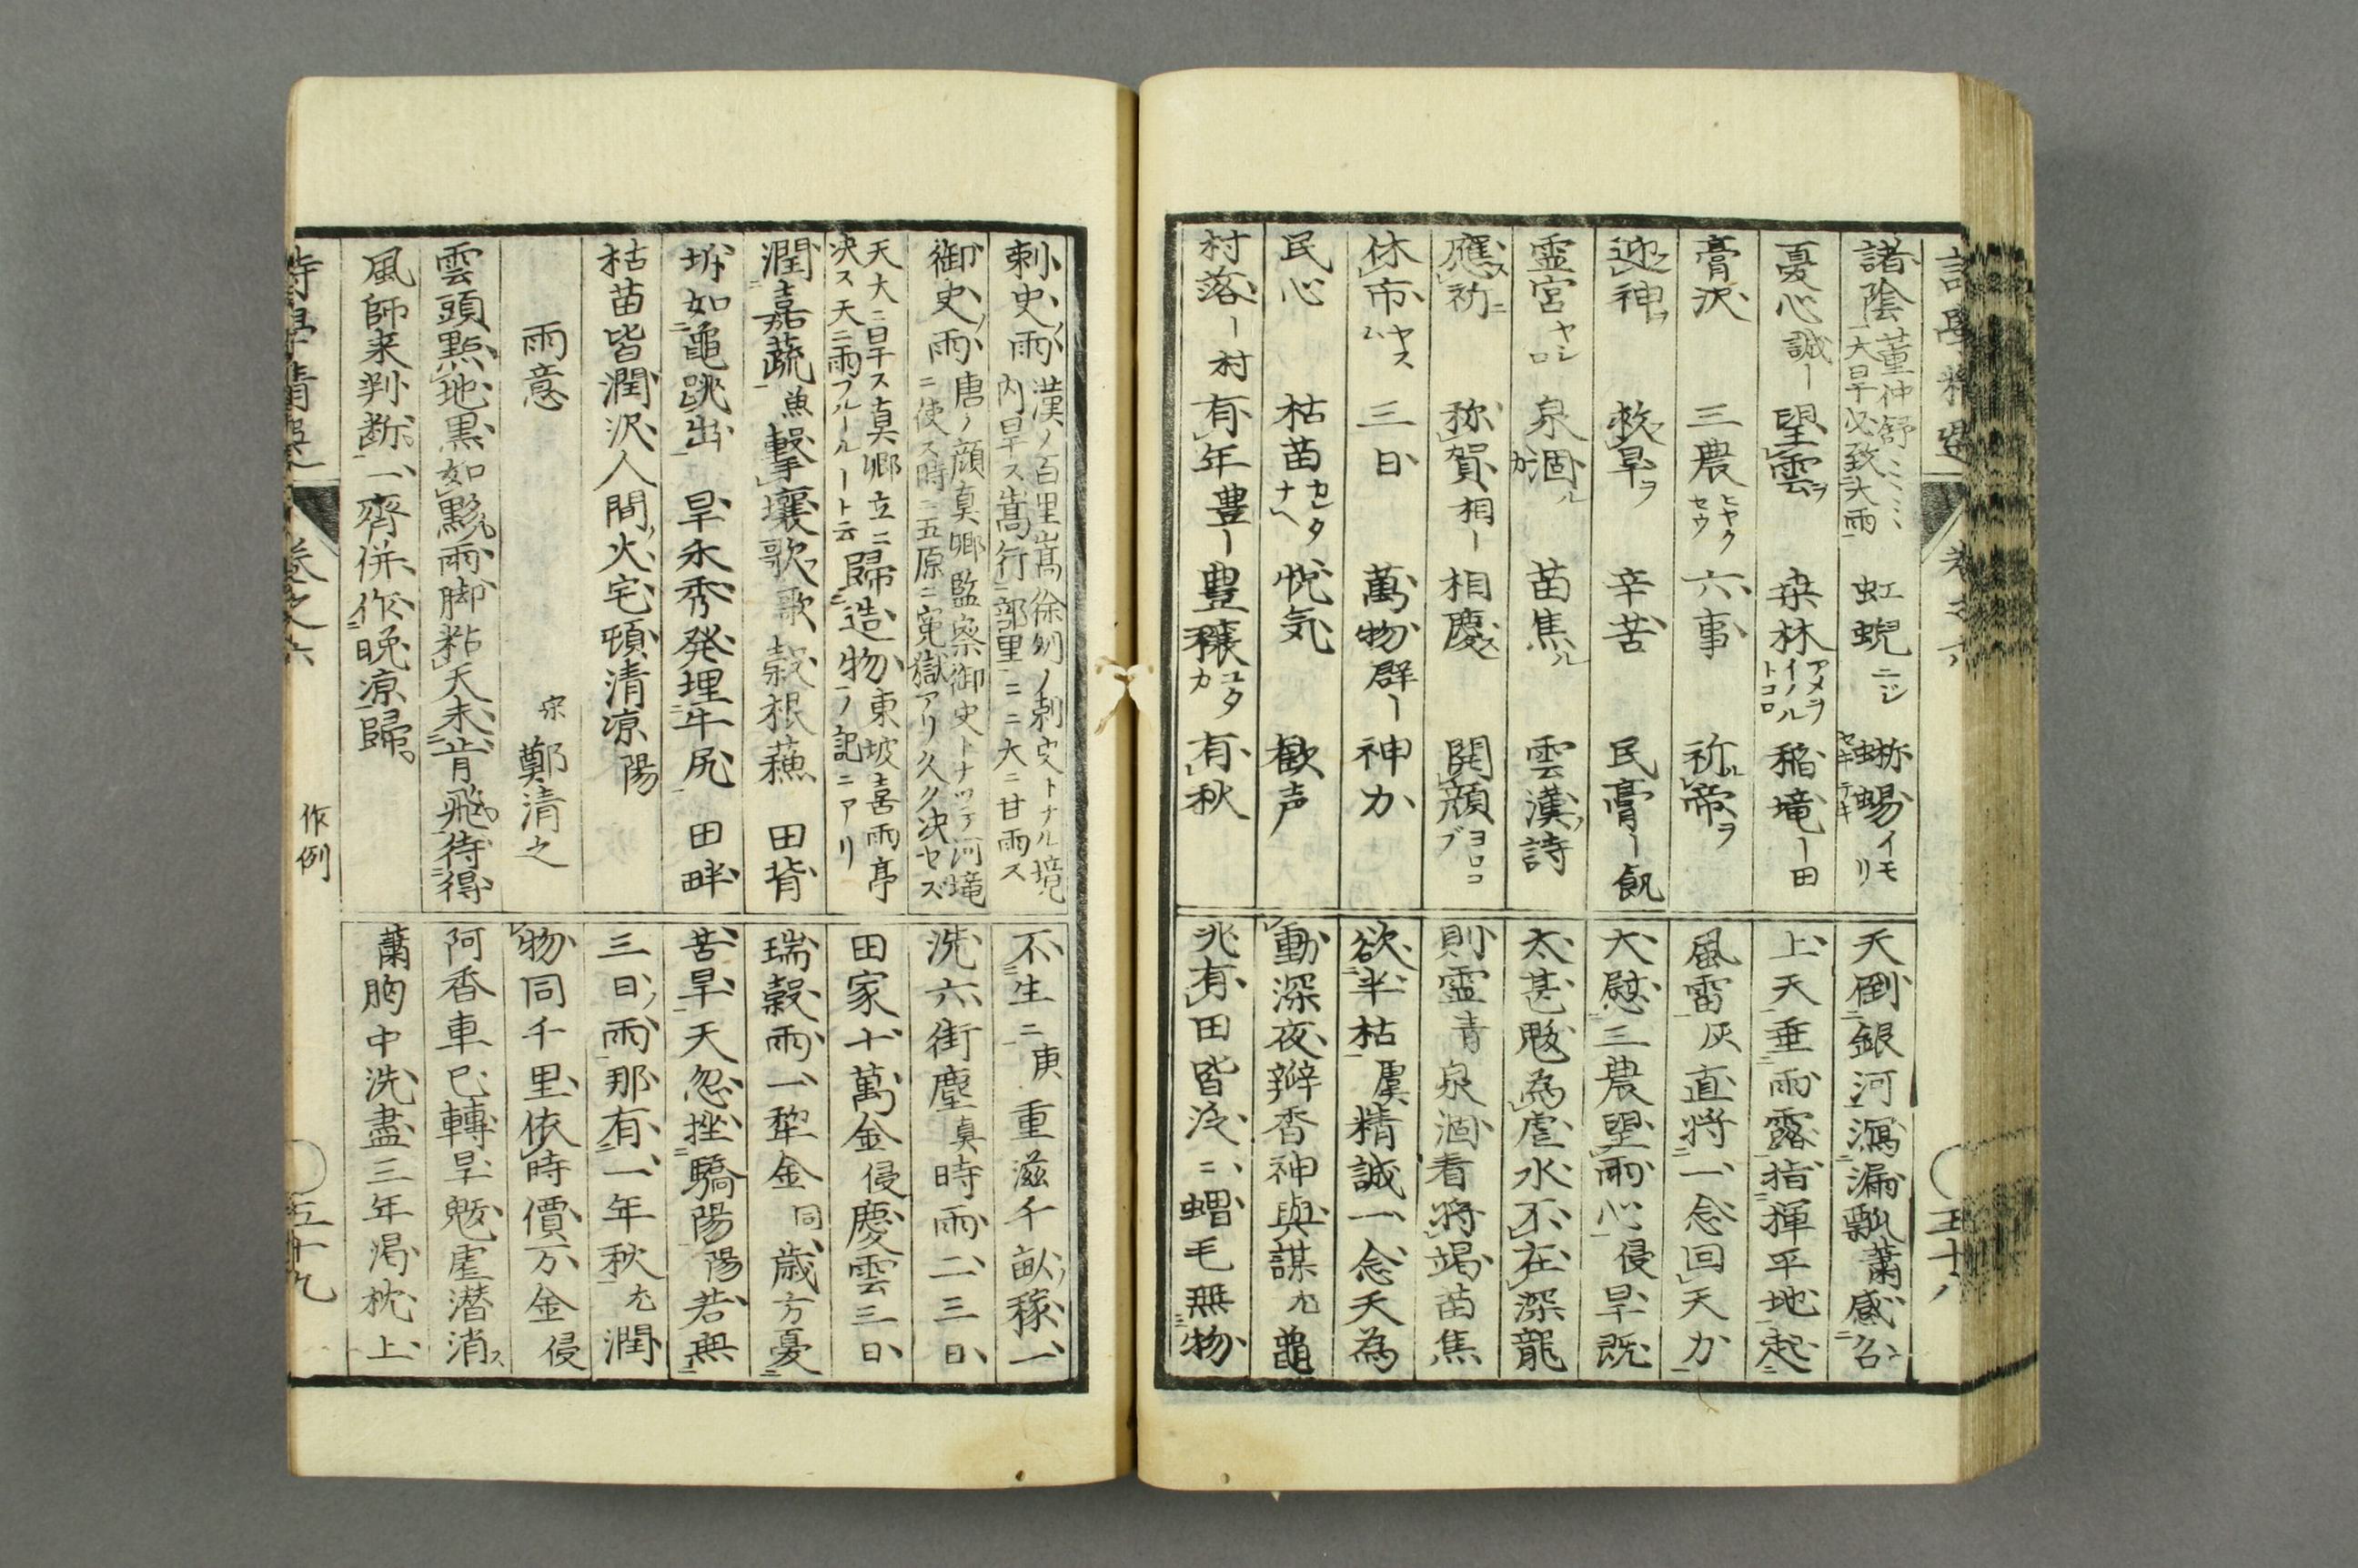 諸陰 董仲舒ミミミ大旱必致大雨 虹蜺ニジ 蜥蜴イモリ
憂心 誠ー 望雲ヲ 桒林アメヲイノルトコロ 稲壠ー田
膏沢 三農ヒヤクセウ 六事 祈帝ヲ
迎神 救旱ヲ 辛苦 民膏ー飢
霊宮ヤシロ 泉涸カル 苗焦ル 雲漢ノ詩
應祈ニ 称賀相ー 相慶ス 開顔ヨロコブ
休市ヤスム 三日 萬物群ー 神力
民心 枯苗 悦気 歓声
村落ー村 有年豊ー 豊穣ユタカ 有秋
天倒銀河瀉漏瓢 蕭 感召
上天垂雨露指揮平地起
風雷 灰 直将一念回天力
大慰三農望雨心 侵 旱既
太甚魃為虐水不在深龍
則霊 青 泉涸看将竭苗焦
欲半枯 虞 精誠一念天為
動深夜瓣香神與謀 尤 亀
兆有田皆泛ニ蝟毛無物
卷之六
五十八
刺史雨 漢ノ百里嵩徐州ノ刺史トナル境内旱ス嵩行部里ニニ大ニ甘雨ス
御史雨 唐ノ顔真卿監察御史トナツテ河壠ニ使ス時ニ五原ニ冤獄アリ久ク決セズ
天大ニ旱ス真卿立ニ決ス天ニ雨フルート云 歸造物 東坡喜雨亭ノ記ニアリ
潤嘉蔬 魚 擊壤歌 歌 穀根蘓 田背
坼如亀跳出 旱永秀発埋牛尻 田畔
枯苗皆潤沢人間火宅頓清凉 陽
雨意 宋 鄭清之
雲頭點地黒如黟雨脚粘天未肯飛待得
風師来判断一齊併作晩凉歸
不生ニ 庚 重滋千畝稼一
洗六街塵 真 時雨二三日
田家十萬金 侵 慶雲三日
瑞穀雨一犂金 同 歳方憂
苦旱天忽挫驕陽 陽 若無
三日雨那有一年秋 尤 潤
物同千里依時價万金 侵
阿香車已轉旱魃虐潜消
蕭 胸中洗盡三年渇枕上
卷之六
作例
五十九